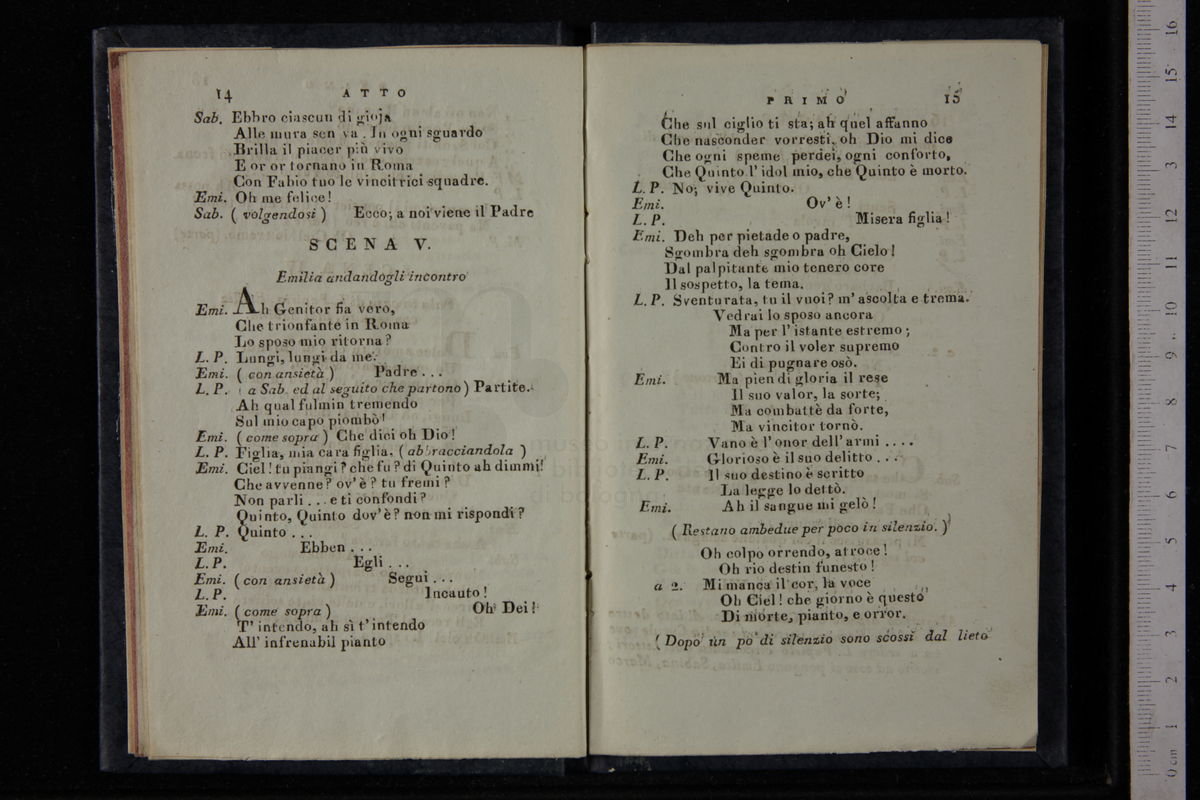 14 ATTO
Sab. Ebbro ciascun di gioja
Alle mura sen va . In ogni sguardo
Brilla il piacer più vivo
E or or tornano in Roma
Con Fabio tuo le vincitrici squadre.
Emi. Oh me felice!
Sab. ( volgendosi ) Ecco; a noi viene il Padre
SCENA V.
Emilia andandogli incontro
Emi. Ah Genitor fia vero,
Che trionfante in Roma
Lo sposo mio ritorna?
L. P. Lungi, lungi da me.
Emi. ( con ansietà ) Padre . . .
L. P. ( a Sab. ed al seguito che partono ) Partite.
Ah qual fulmin tremendo
Sul mio capo piombò!
Emi. ( come sopra ) Che dici oh Dio!
L. P. Figlia, mia cara figlia. ( abbracciandola )
Emi. Ciel! tu piangi? che fu? di Quinto ah dimmi!
Che avvenne? ov'è? tu fremi?
Non parli . . . e ti confondi?
Quinto, Quinto dov'è? non mi rispondi?
L. P. Quinto . . .
Emi. Ebben . . .
L. P. Egli . . .
Emi. ( con ansietà ) Segui . . .
L. P. Incauto!
Emi. ( come sopra ) Oh Dei!
T' intendo, ah sì t' intendo
All' infrenabil pianto
PRIMO 15
Che sul ciglio ti sta; ah quel affanno
Che nasconder vorresti, oh Dio mi dice
Che ogni speme perdei, ogni conforto,
Che Quinto l' idol mio, che Quinto è morto.
L. P. No; vive Quinto.
Emi. Ov' è!
L. P. Misera figlia!
Emi. Deh per pietade o padre,
Sgombra deh sgombra oh Cielo!
Dal palpitante mio tenero core
Il sospetto, la tema.
L. P. Sventurata, tu il vuoi? m' ascolta e trema.
Vedrai lo sposo ancora
Ma per l' istante estremo;
Contro il voler supremo
Ei di pugnare osò.
Emi. Ma pien di gloria il rese
Il suo valor, la sorte;
Ma combattè da forte,
Ma vincitor tornò.
L. P. Vano è l' onor dell' armi . . . .
Emi. Glorioso è il suo delitto . . .
L. P. Il suo destino è scritto
La legge lo dettò.
Emi. Ah il sangue mi gelò!
( Restano ambedue per poco in silenzio. )
Oh colpo orrendo, atroce!
Oh rio destin funesto!
a 2. Mi manca il cor, la voce
Oh Ciel! che giorno è questo
Di morte, pianto, e orror.
( Dopo un pò di silenzio sono scossi dal lieto